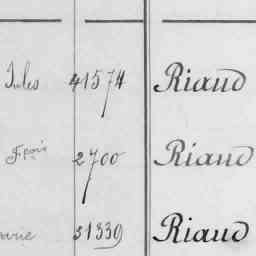 Jules 41574 Riaud
Fçois 2700 Riaud
31339 Riaud